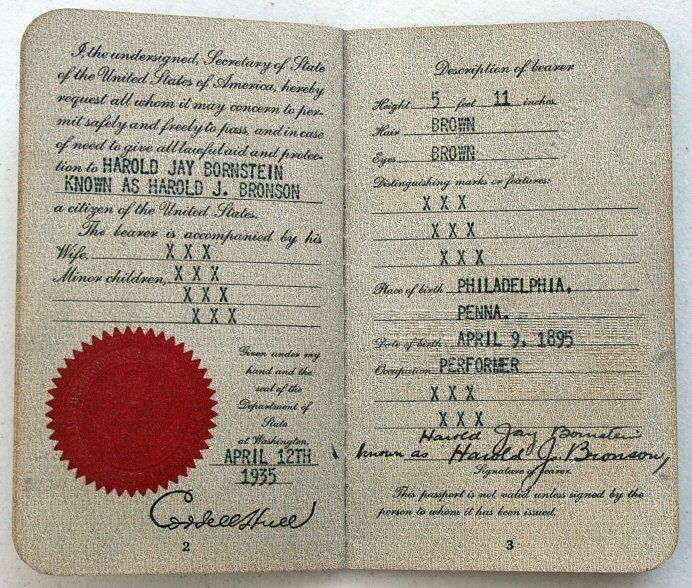 I, the undersigned, Secretary of State
of the United States of America, hereby
request all whom it may concern to per-
mit safely and freely to pass, and in case
of need to give all lawful aid and protec-
tion to HAROLD JAY BORNSTEIN
KNOWN AS HAROLD J. BRONSON
a citizen of the United States.
The bearer is accompanied by his
Wife, X X X
Minor children, X X X
X X X
X X X
Given under my
hand and the
seal of the
Department of
State
at Washington,
APRIL 12TH
1935
Cordell Hull
2
Description of bearer
Height 5 feet 11 inches.
Hair BROWN
Eyes BROWN
Distinguishing marks or features:
X X X
X X X
X X X
Place of birth PHILADELPHIA,
PENNA.
Date of birth APRIL 9, 1895
Occupation PERFORMER
X X X
X X X
Harold Jay Bornstein
known as Harold J. Bronson,
Signature of bearer.
This passport is not valid unless signed by the
person to whom it has been issued.
3